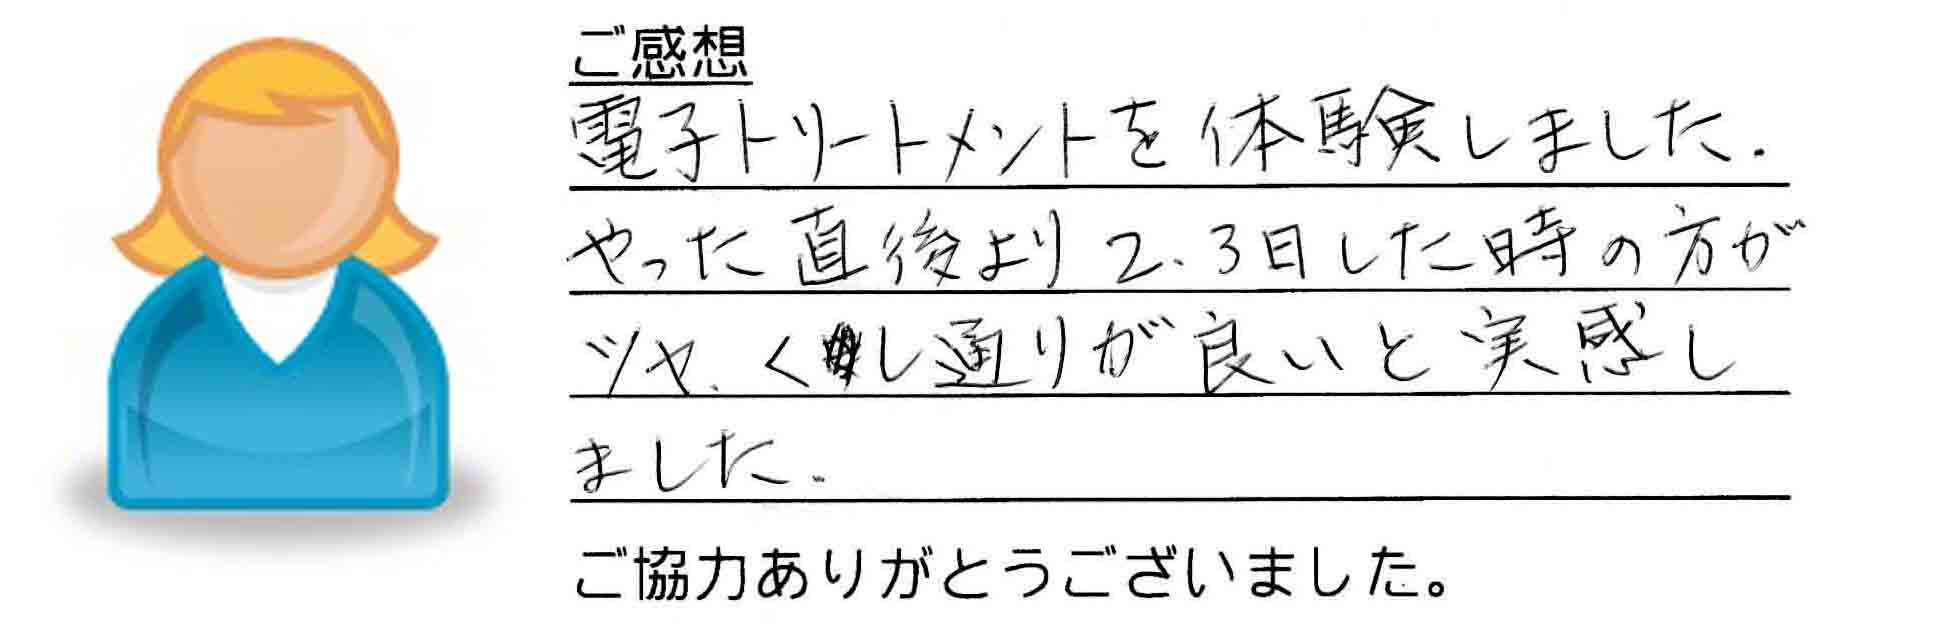 ご感想
電子トリートメントを体験しました.
やった直後より2.3日した時の方が
ツヤ.くし通りが良いと実感し
ました.
ご協力ありがとうございました。